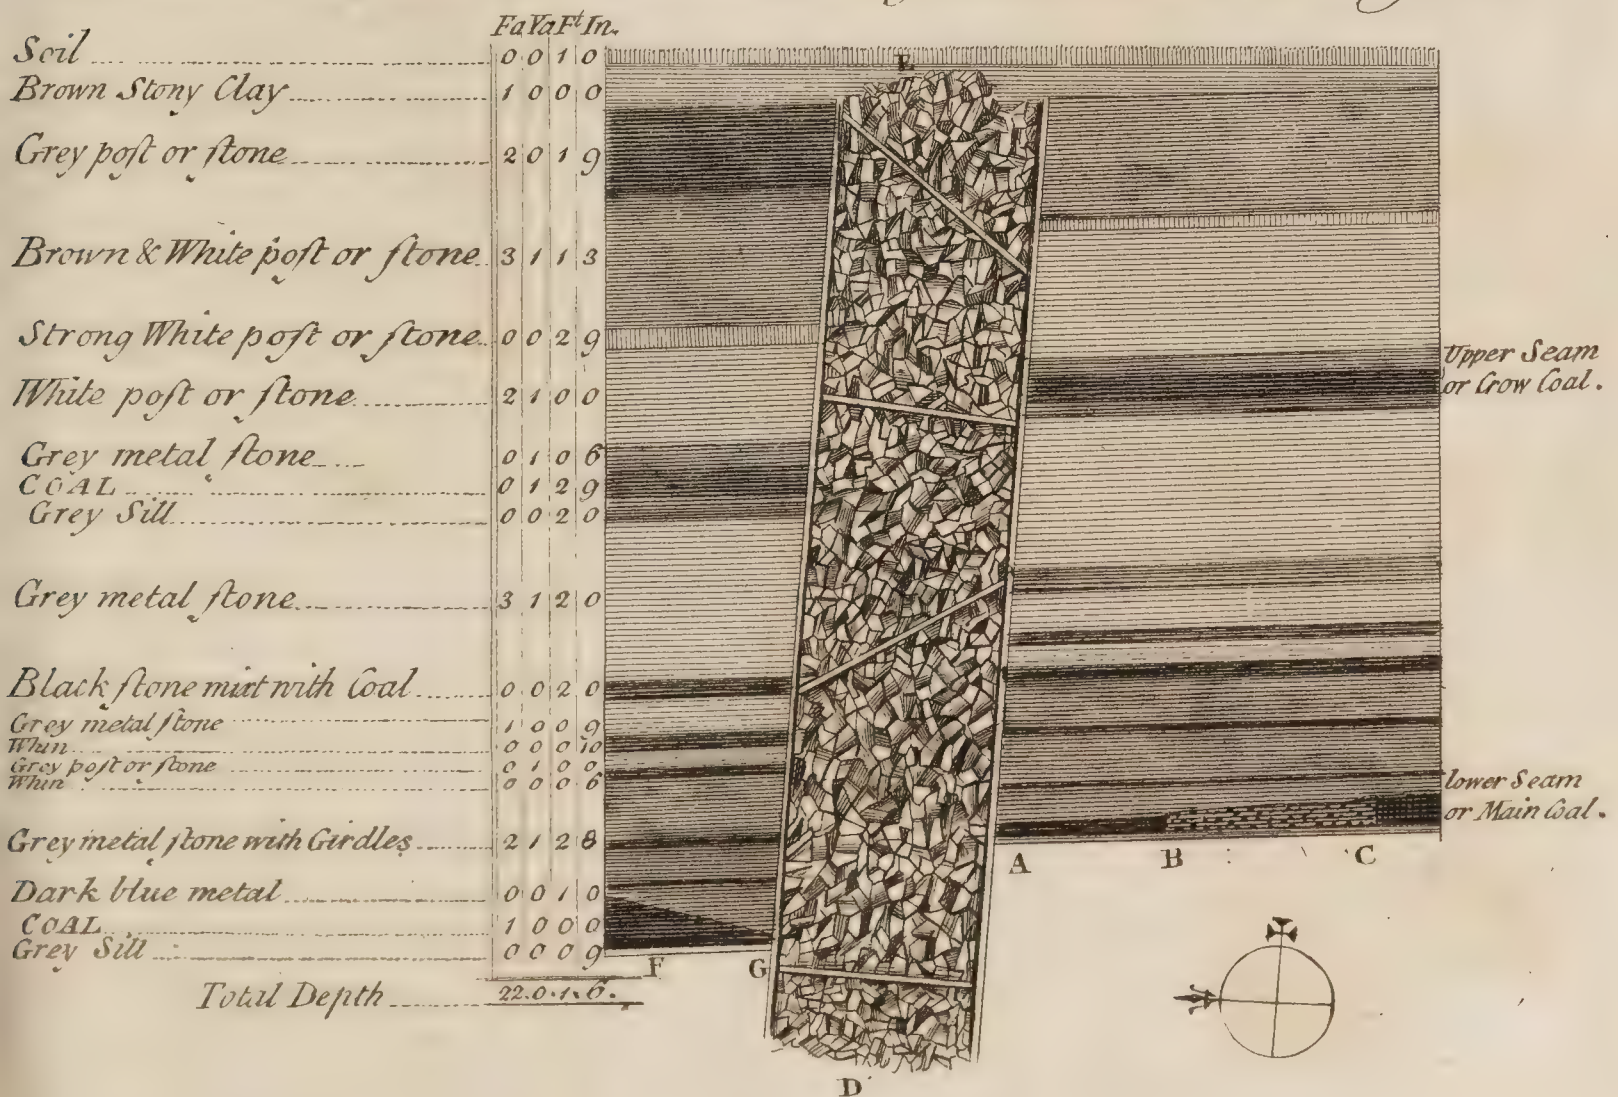 Fa Ya Ft In.
Soil 0 0 1 0
Brown Stony Clay 1 0 0 0
Grey poſt or ſtone 2 0 1 9
Brown & White poſt or ſtone 3 1 1 3
Strong White poſt or ſtone 0 0 2 9
White poſt or ſtone 2 1 0 0
Grey metal ſtone 0 1 0 6
COAL 0 1 2 9
Grey Sill 0 0 2 0
Grey metal ſtone 3 1 2 0
Black ſtone mixt with Coal 0 0 2 0
Grey metal ſtone 1 0 0 9
Whin 0 0 0 10
Grey poſt or ſtone 0 1 0 0
Whin 0 0 0 6
Grey metal ſtone with Girdles 2 1 2 8
Dark blue metal 0 0 1 0
COAL 1 0 0 0
Grey Sill 0 0 0 9
Total Depth 22.0.1.6.
E
Upper Seam
or Crow Coal.
lower Seam
or Main Coal.
A B C
F G
D